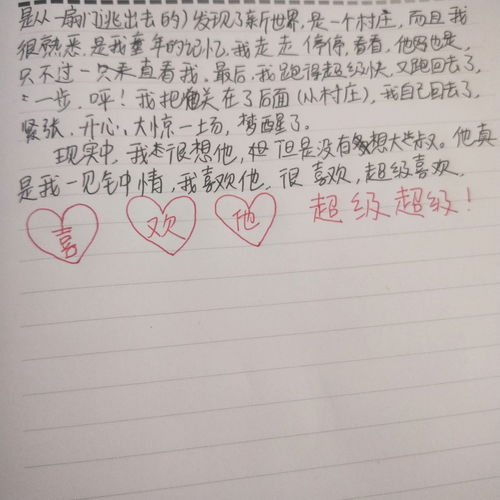 是从一扇门逃出去的)发现了新世界,是一个村庄,而且我
很熟悉,是我童年的记忆,我走走停停,看看,他也是,
只不过一只来直看我,最后,我跑得超级快,又跑回去了,
一步,呯!我把他关在了后面(从村庄),我自己回去了,
紧张、开心、大惊一场,梦醒了。
现实中,我很想他,但是没有想大叔。他真
是我一见钟情,我喜欢他,很喜欢,超级喜欢,
喜 欢 他 超级超级!